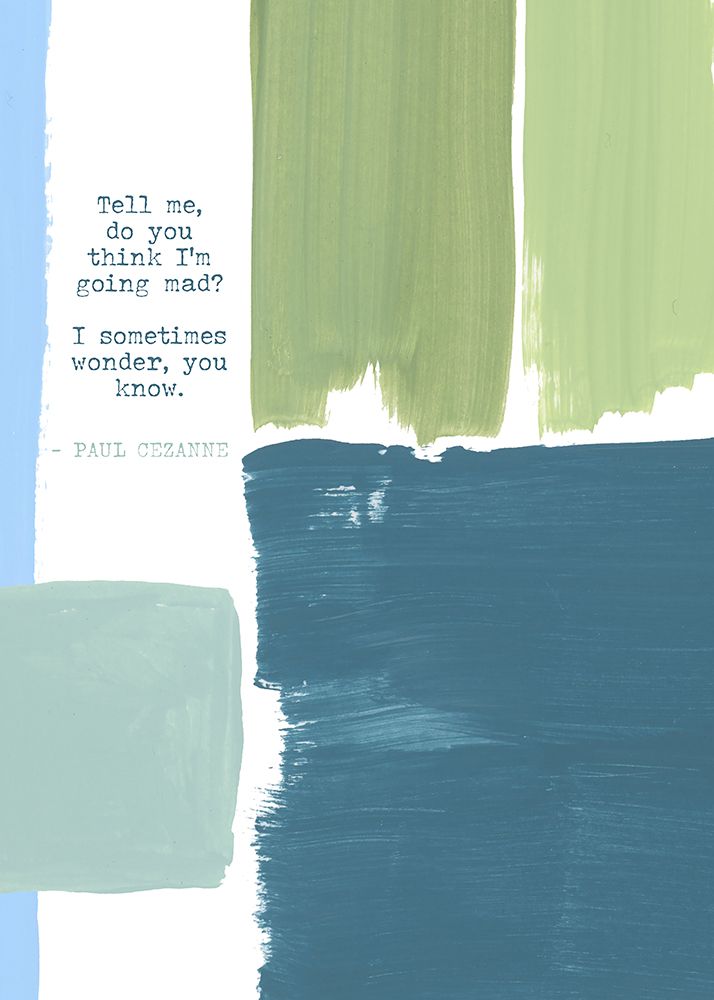 Tell me,
do you
think I'm
going mad?
I sometimes
wonder, you
know.
- PAUL CEZANNE